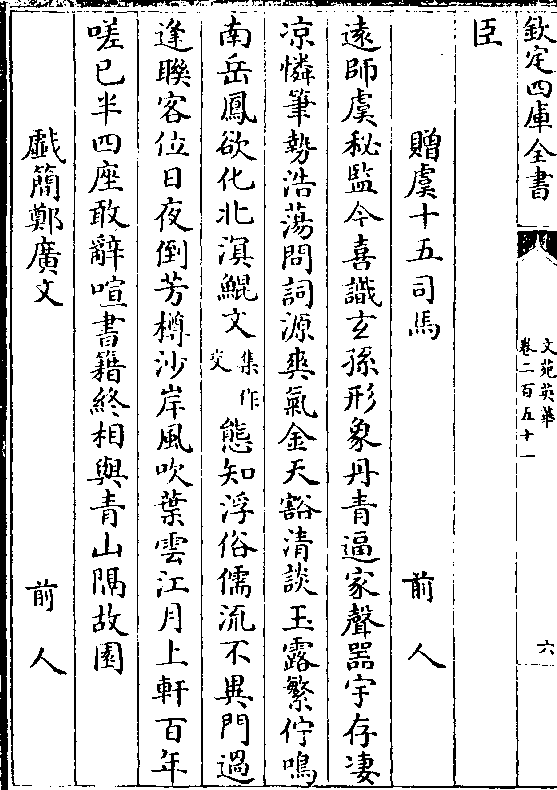 欽定四庫全書
文苑英華
卷二百五十一
六
臣
贈虞十五司馬 前人
遠師虞秘監今喜識玄孫形象丹青逼家聲器宇存凄
凉憐筆勢浩蕩問詞源爽氣金天豁清談玉露繁佇鳴
南岳鳳欲化北溟鯤文集作交態知浮俗儒流不異門過
逢聯客位日夜倒芳樽沙岸風吹葉雲江月上軒百年
嗟已半四座敢辭喧書籍終相與青山隔故園
戱簡鄭廣文 前人